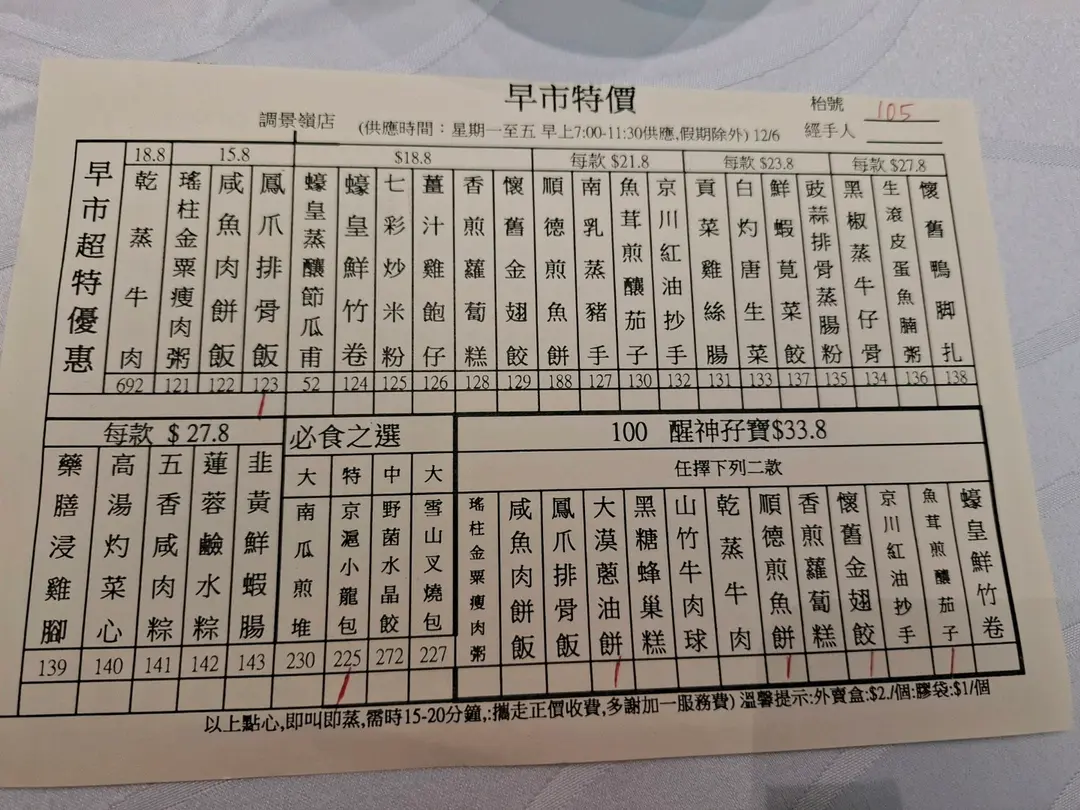 早市特價
枱號 105
調景嶺店 (供應時間：星期一至五 早上7:00-11:30供應,假期除外) 12/6 經手人
早市超特優惠
18.8
乾蒸牛肉 692
15.8
瑤柱金粟瘦肉粥 121
咸魚肉餅飯 122
鳳爪排骨飯 123
$18.8
蠔皇蒸釀節瓜甫 52
蠔皇鮮竹卷 124
七彩炒米粉 125
薑汁雞飽仔 126
香煎蘿蔔糕 128
懷舊金翅餃 129
每款 $21.8
順德煎魚餅 188
南乳蒸豬手 127
魚茸煎釀茄子 130
京川紅油抄手 132
每款 $23.8
貢菜雞絲腸 131
白灼唐生菜 133
鮮蝦莧菜餃 137
豉蒜排骨蒸腸粉 135
每款 $27.8
黑椒蒸牛仔骨 134
生滾皮蛋魚腩粥 136
懷舊鴨脚扎 138
每款 $ 27.8
藥膳浸雞腳 139
高湯灼菜心 140
五香咸肉粽 141
蓮蓉鹼水粽 142
韭黃鮮蝦腸 143
必食之選
大 南瓜煎堆 230
特 京滬小龍包 225
中 野菌水晶餃 272
大 雪山叉燒包 227
100 醒神孖寶$33.8
任擇下列二款
瑤柱金粟瘦肉粥
咸魚肉餅飯
鳳爪排骨飯
大漠蔥油餅
黑糖蜂巢糕
山竹牛肉球
乾蒸牛肉
順德煎魚餅
香煎蘿蔔糕
懷舊金翅餃
京川紅油抄手
魚茸煎釀茄子
蠔皇鮮竹卷
以上點心,即叫即蒸,需時15-20分鐘,:攜走正價收費,多謝加一服務費) 溫馨提示:外賣盒:$2./個:膠袋:$1/個